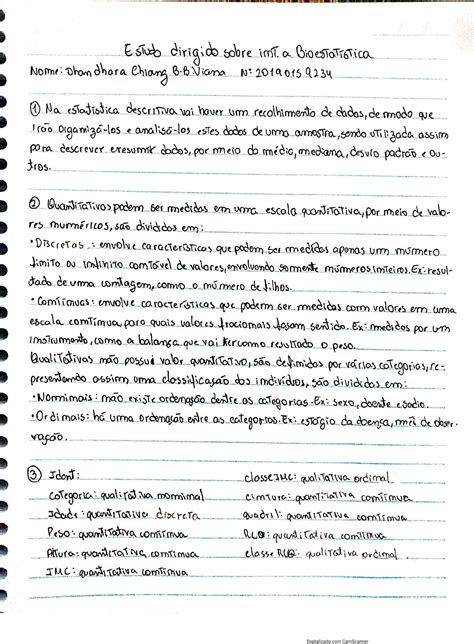 Estudo dirigido sobre int. a Bioestatística
Nome: Dhandhara Chiang B.B. Viana Nº: 20190159234
① Na estatística descritiva vai haver um recolhimento de dados, de modo que
irão organizá-los e analisá-los estes dados de uma amostra, sendo utilizada assim
para descrever e resumir dados, por meio da média, mediana, desvio padrão e ou-
tros.
② Quantitativos podem ser medidas em uma escala quantitativa, por meio de valo-
res numéricos, são divididos em:
• Discretas: envolve características que podem ser medidos apenas um número
finito ou infinito contável de valores, envolvendo somente números inteiros. Ex: resul-
tado de uma contagem, como o número de filhos.
• Contínuas: envolve características que podem ser medidas com valores em uma
escala contínua, para quais valores fracionais façam sentido. Ex: medidos por um
instrumento, como a balança que vai ter como resultado o peso.
Qualitativas não possui valor quantitativo, são definidos por várias categorias, re-
presentando assim uma classificação dos indivíduos, são divididas em:
• Nominais: não existe ordenação dentre as categorias. Ex: sexo, doente e sadio.
• Ordinais: há uma ordenação entre as categorias. Ex: estágio da doença, mês de obser-
vação.
③ Ident:
Categoria: qualitativa nominal
Idade: quantitativa discreta
Peso: quantitativa contínua
Altura: quantitativa contínua
IMC: quantitativa contínua
classe IMC: qualitativa ordinal
cintura: quantitativa contínua
quadril: quantitativa contínua
RCQ: quantitativa contínua
classe RCQ: qualitativa ordinal
Digitalizado com CamScanner